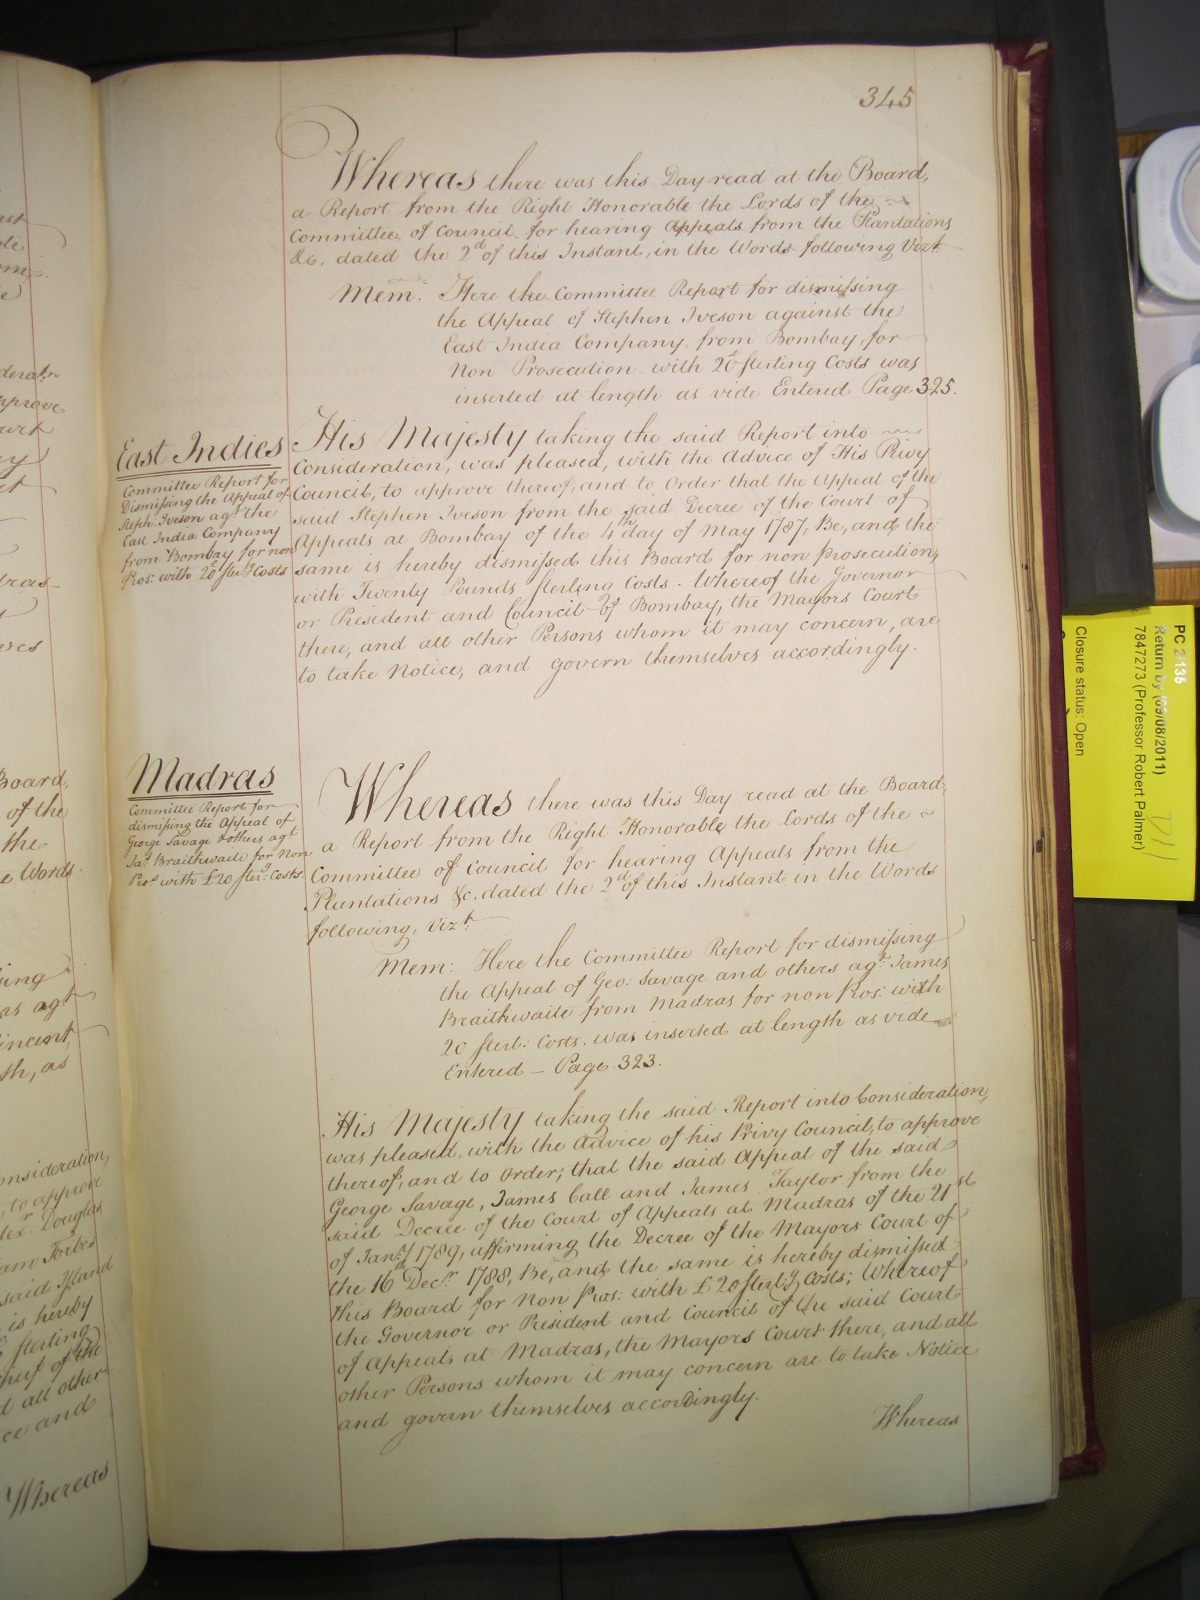 345
Whereas there was this Day read at the Board,
a Report from the Right Honorable the Lords of the
Committee of Council for hearing Appeals from the Plantations
&c. dated the 2d of this Instant, in the Words following Vizt.
Mem: Here the Committee Report for dismissing
the Appeal of Stephen Iveson against the
East India Company, from Bombay, for
Non Prosecution with 20£ sterling Costs was
inserted at length as vide Entered Page 325.
East Indies
Committee Report for
Dismissing the Appeal of
Steph: Iveson agt the
East India Company
from Bombay for non
Pros: with 20£ sterg Costs
His Majesty taking the said Report into
Consideration, was pleased, with the Advice of His Privy
Council, to approve thereof, and to Order that the Appeal of the
said Stephen Iveson from the said Decree of the Court of
Appeals at Bombay of the 4th day of May 1787, Be, and the
same is hereby dismissed this Board for non prosecution,
with Twenty Pounds sterling Costs. Whereof the Governor
or President and Council of Bombay, the Mayors Court
there, and all other Persons whom it may concern, are
to take Notice, and govern themselves accordingly.
Madras
Committee Report for
dismissing the Appeal of
George Savage & others agt
Jas. Braithwaite for Non
Pros with £20 sterg: Costs.
Whereas there was this Day read at the Board,
a Report from the Right Honorable the Lords of the
Committee of Council for hearing Appeals from the
Plantations &c. dated the 2d of this Instant, in the Words
following, Vizt.
Mem: Here the Committee Report for dismissing
the Appeal of Geo: Savage and others agt James
Braithwaite from Madras for non Pros: with
20 sterl: Costs. was inserted at length as vide
Entered — Page 323.
His Majesty taking the said Report into Consideration,
was pleased, with the Advice of his Privy Council, to approve
thereof, and to Order; that the said Appeal of the said
George Savage, James Call and James Taylor from the
said Decree of the Court of Appeals at Madras of the 21st
of Jany 1789, affirming the Decree of the Mayors Court of
the 16th Decr. 1788, Be, and the same is hereby dismissed
this Board for Non Pros: with £20 sterlg Costs; Whereof
the Governor or President and Council of the said Court
of Appeals at Madras, the Mayors Court there, and all
other Persons whom it may concern are to take Notice
and govern themselves accordingly.
Whereas
Board,
of the
the
Words
agt
incent
as
onsideration,
to approve
Douglas
Forbes
said Island
is hereby
sterling
of the
all other
and
Whereas
PC 2/135
Return by (09/08/2011)
7847273 (Professor Robert Palmer)
Closure status: Open